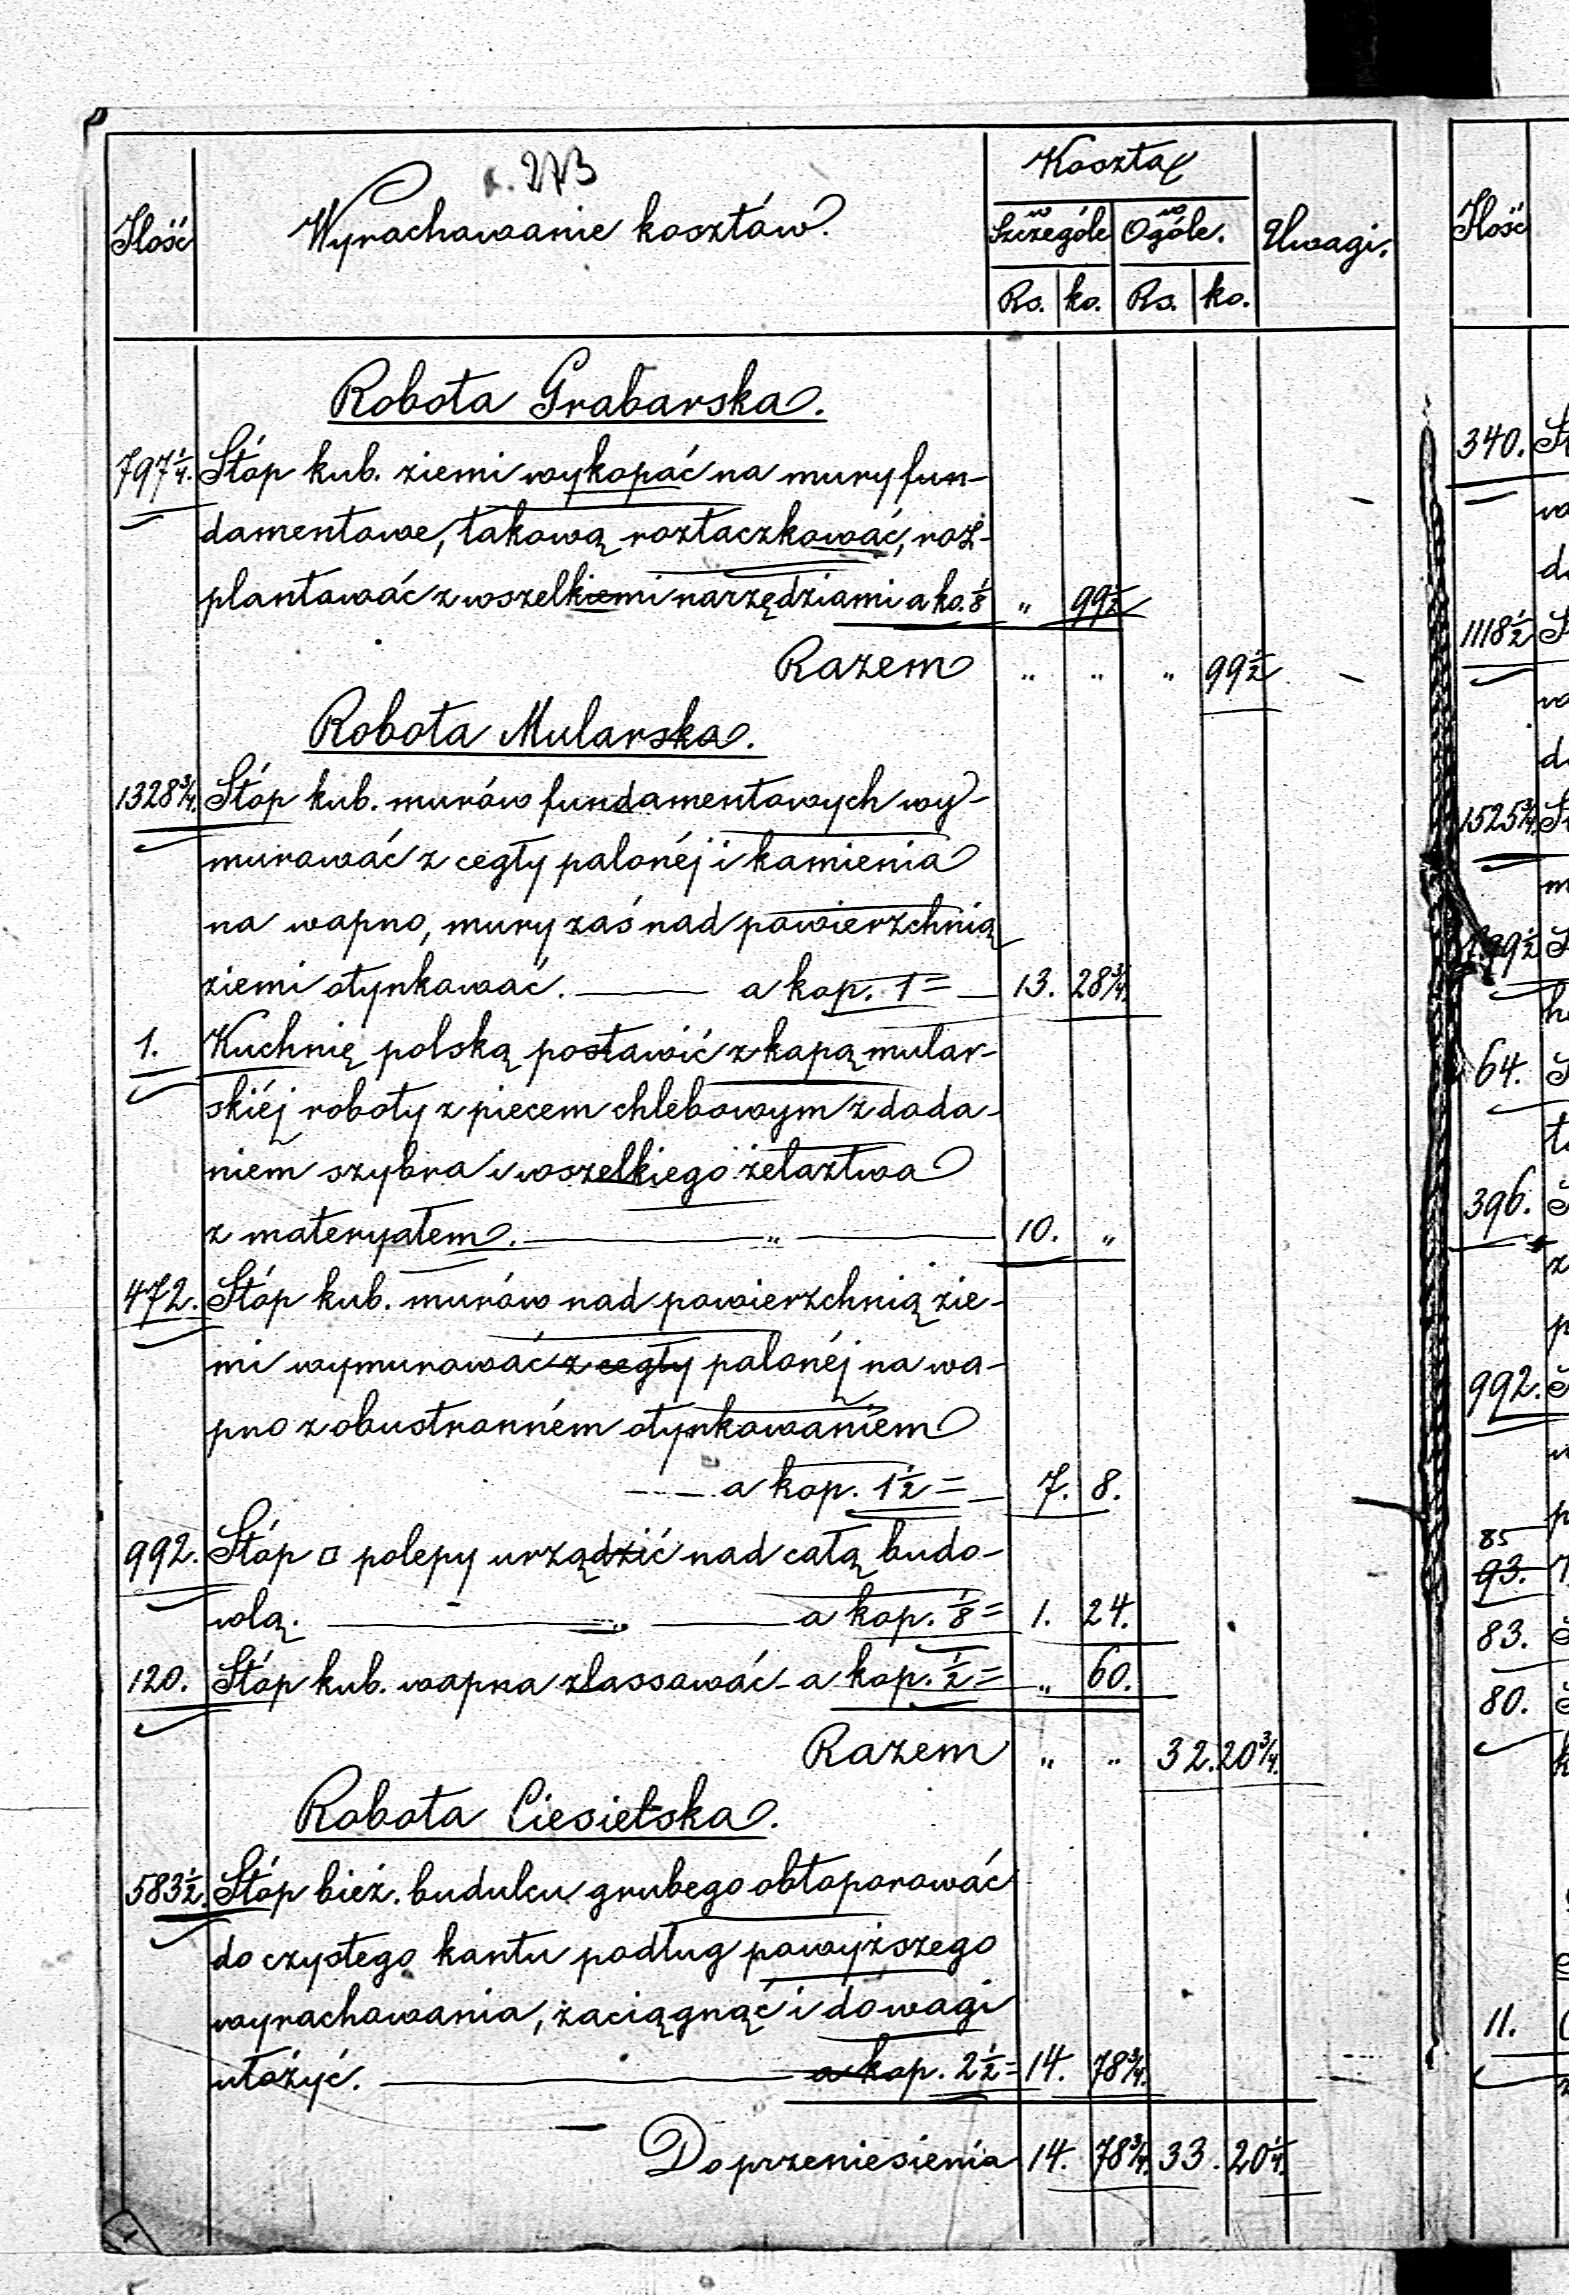 273
Ilość Wyrachowanie kosztów. Koszta Uwagi. Ilość
w Szczególe w Ogóle.
Rs. ko. Rs. ko.
Robota Grabarska.
797 1/4. Stóp kub. ziemi wykopać na mury fun-
damentowe, takową roztaczkować, roz-
plantować z wszelkiemi narzędziami a ko. 1/8 " 99 1/2
Razem " " " 99 1/2
Robota Mularska.
1328 3/4. Stóp kub. murów fundamentowych wy-
murować z cegły palonéj i kamienia
na wapno, mury zaś nad powierzchnią
ziemi otynkować. a kop. 1 = 13. 28 3/4.
1. Kuchnię polską postawić z kapą mular-
skiéj roboty z piecem chlebowym z doda-
niem szybra i wszelkiego żelaztwa
z materyałem. " 10. "
472. Stóp kub. murów nad powierzchnią zie-
mi wymurować z cegły palonéj na wa-
pno z obustronném otynkowaniem
a kop. 1 1/2 = 7. 8.
992. Stóp □ polepy urządzić nad całą budo-
wlą. " a kop. 1/8 = 1. 24.
120. Stóp kub. wapna zlassować - a kop. 1/2 = " 60.
Razem " " 32. 20 3/4.
Robota Ciesielska.
583 1/2. Stóp bież. budulcu grubego obtoporować
do czystego kantu podług powyższego
wyrachowania, zaciągnąć i do wagi
ułożyć. a kop. 2 1/2 = 14. 78 3/4.
Do przeniesienia 14. 78 3/4. 33. 20 1/4.
340.
1118 1/2
1525 3/4
64.
396.
992.
85
93.
83.
80.
11.